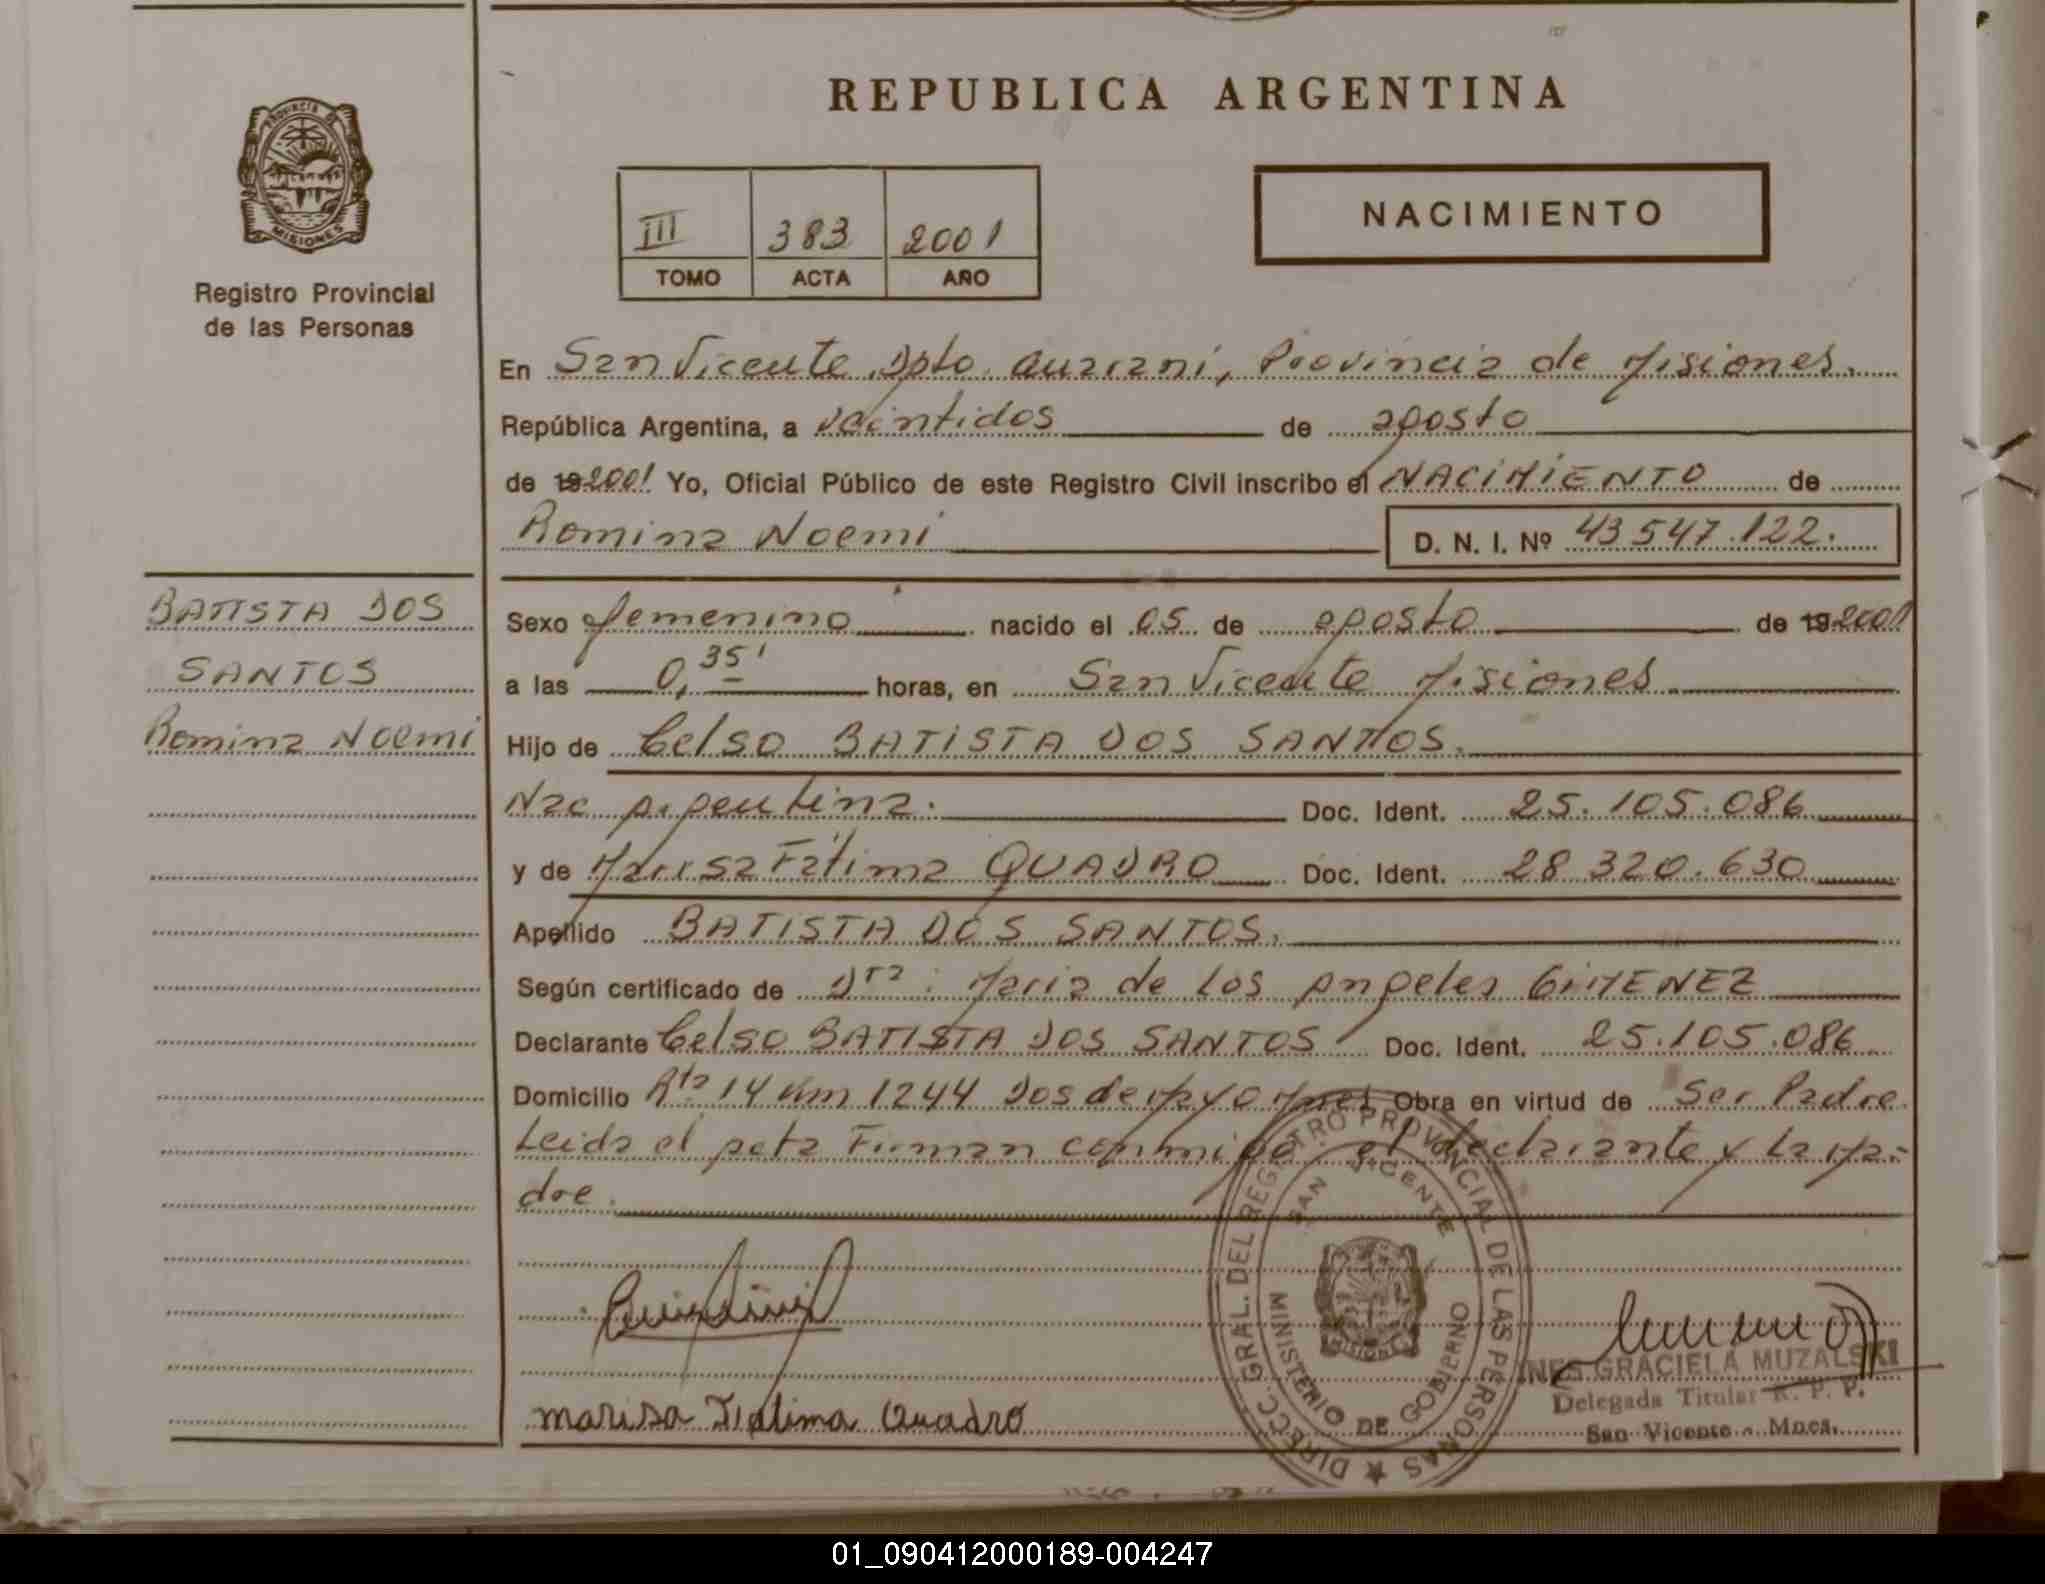 REPUBLICA ARGENTINA
PROVINCIA DE
MISIONES
Registro Provincial
de las Personas
III 383 2001
TOMO ACTA AÑO
NACIMIENTO
En San Vicente Dpto. Guarani, Provincia de Misiones.
República Argentina, a veintidos de agosto
de 19 2001 Yo, Oficial Público de este Registro Civil inscribo el NACIMIENTO de
Romina Noemi D. N. I. Nº 43 547.122.
BATISTA DOS
SANTOS
Romina Noemi
Sexo femenino nacido el 05 de agosto de 19 2001
a las 0,35' horas, en San Vicente Misiones
Hijo de Celso BATISTA DOS SANTOS.
Nac Argentina. Doc. Ident. 25.105.086
y de Marisa Fatima QUADRO Doc. Ident. 28 320.630
Apellido BATISTA DOS SANTOS.
Según certificado de Dra: Maria de Los Angeles GIMENEZ
Declarante Celso BATISTA DOS SANTOS Doc. Ident. 25.105.086
Domicilio Rta 14 Km 1244 Dos de Mayo Mnes Obra en virtud de Ser Padre
Leida el acta Firman conmigo el declarante y La Ma-
dre.
DIRECC. GRAL. DEL REGISTRO PROVINCIAL DE LAS PERSONAS
SAN VICENTE
MISIONES
MINISTERIO DE GOBIERNO
INES GRACIELA MUZALSKI
Delegada Titular R. P. P.
San Vicente - Mnes.
Marisa Fatima Quadro
01_090412000189-004247